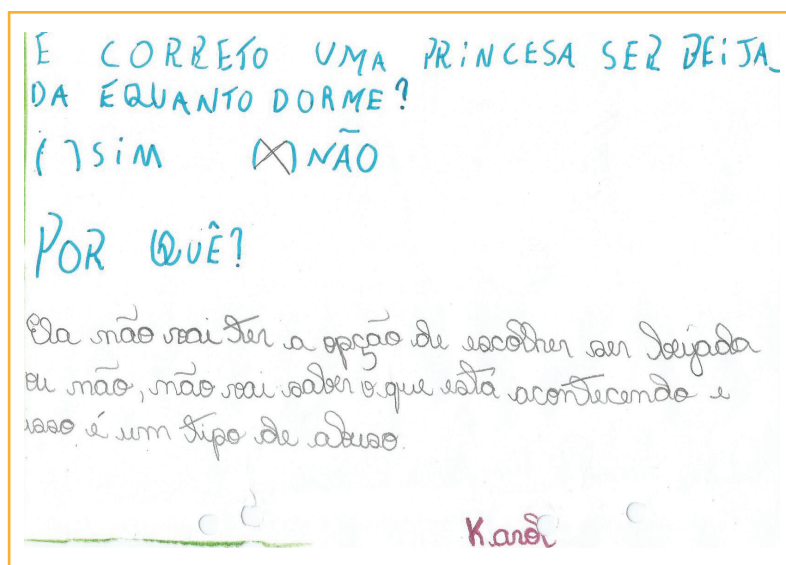 E CORRETO UMA PRINCESA SER BEIJA_
DA EQUANTO DORME?
( ) SiM (X) NÃO
POR QUÊ?
Ela não vai ter a opção de escolher ser beijada
ou não, não vai saber o que está acontecendo e
isso é um tipo de abuso.
Karol